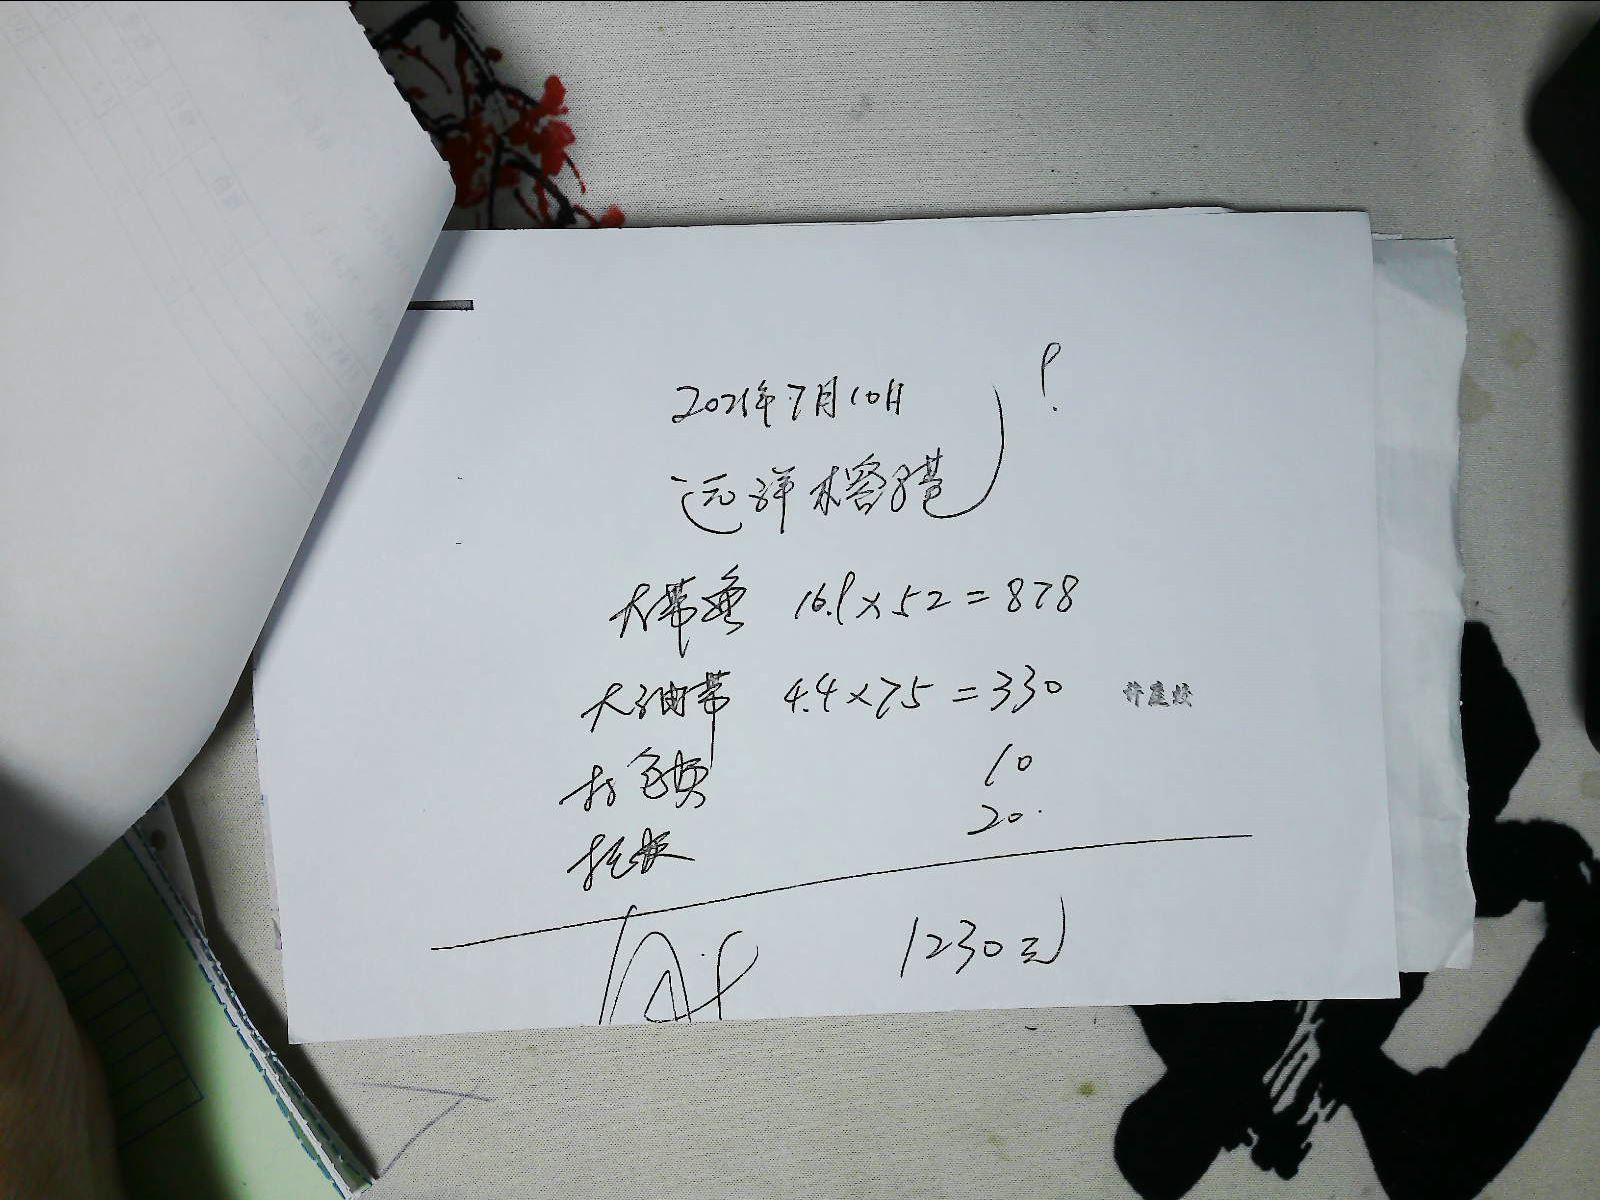 2021年7月10日
远洋榕腊
大带鱼 16.9×52=878
大油带 4.4×75=330
许庭姣
打包费 10
托板 20
1230元